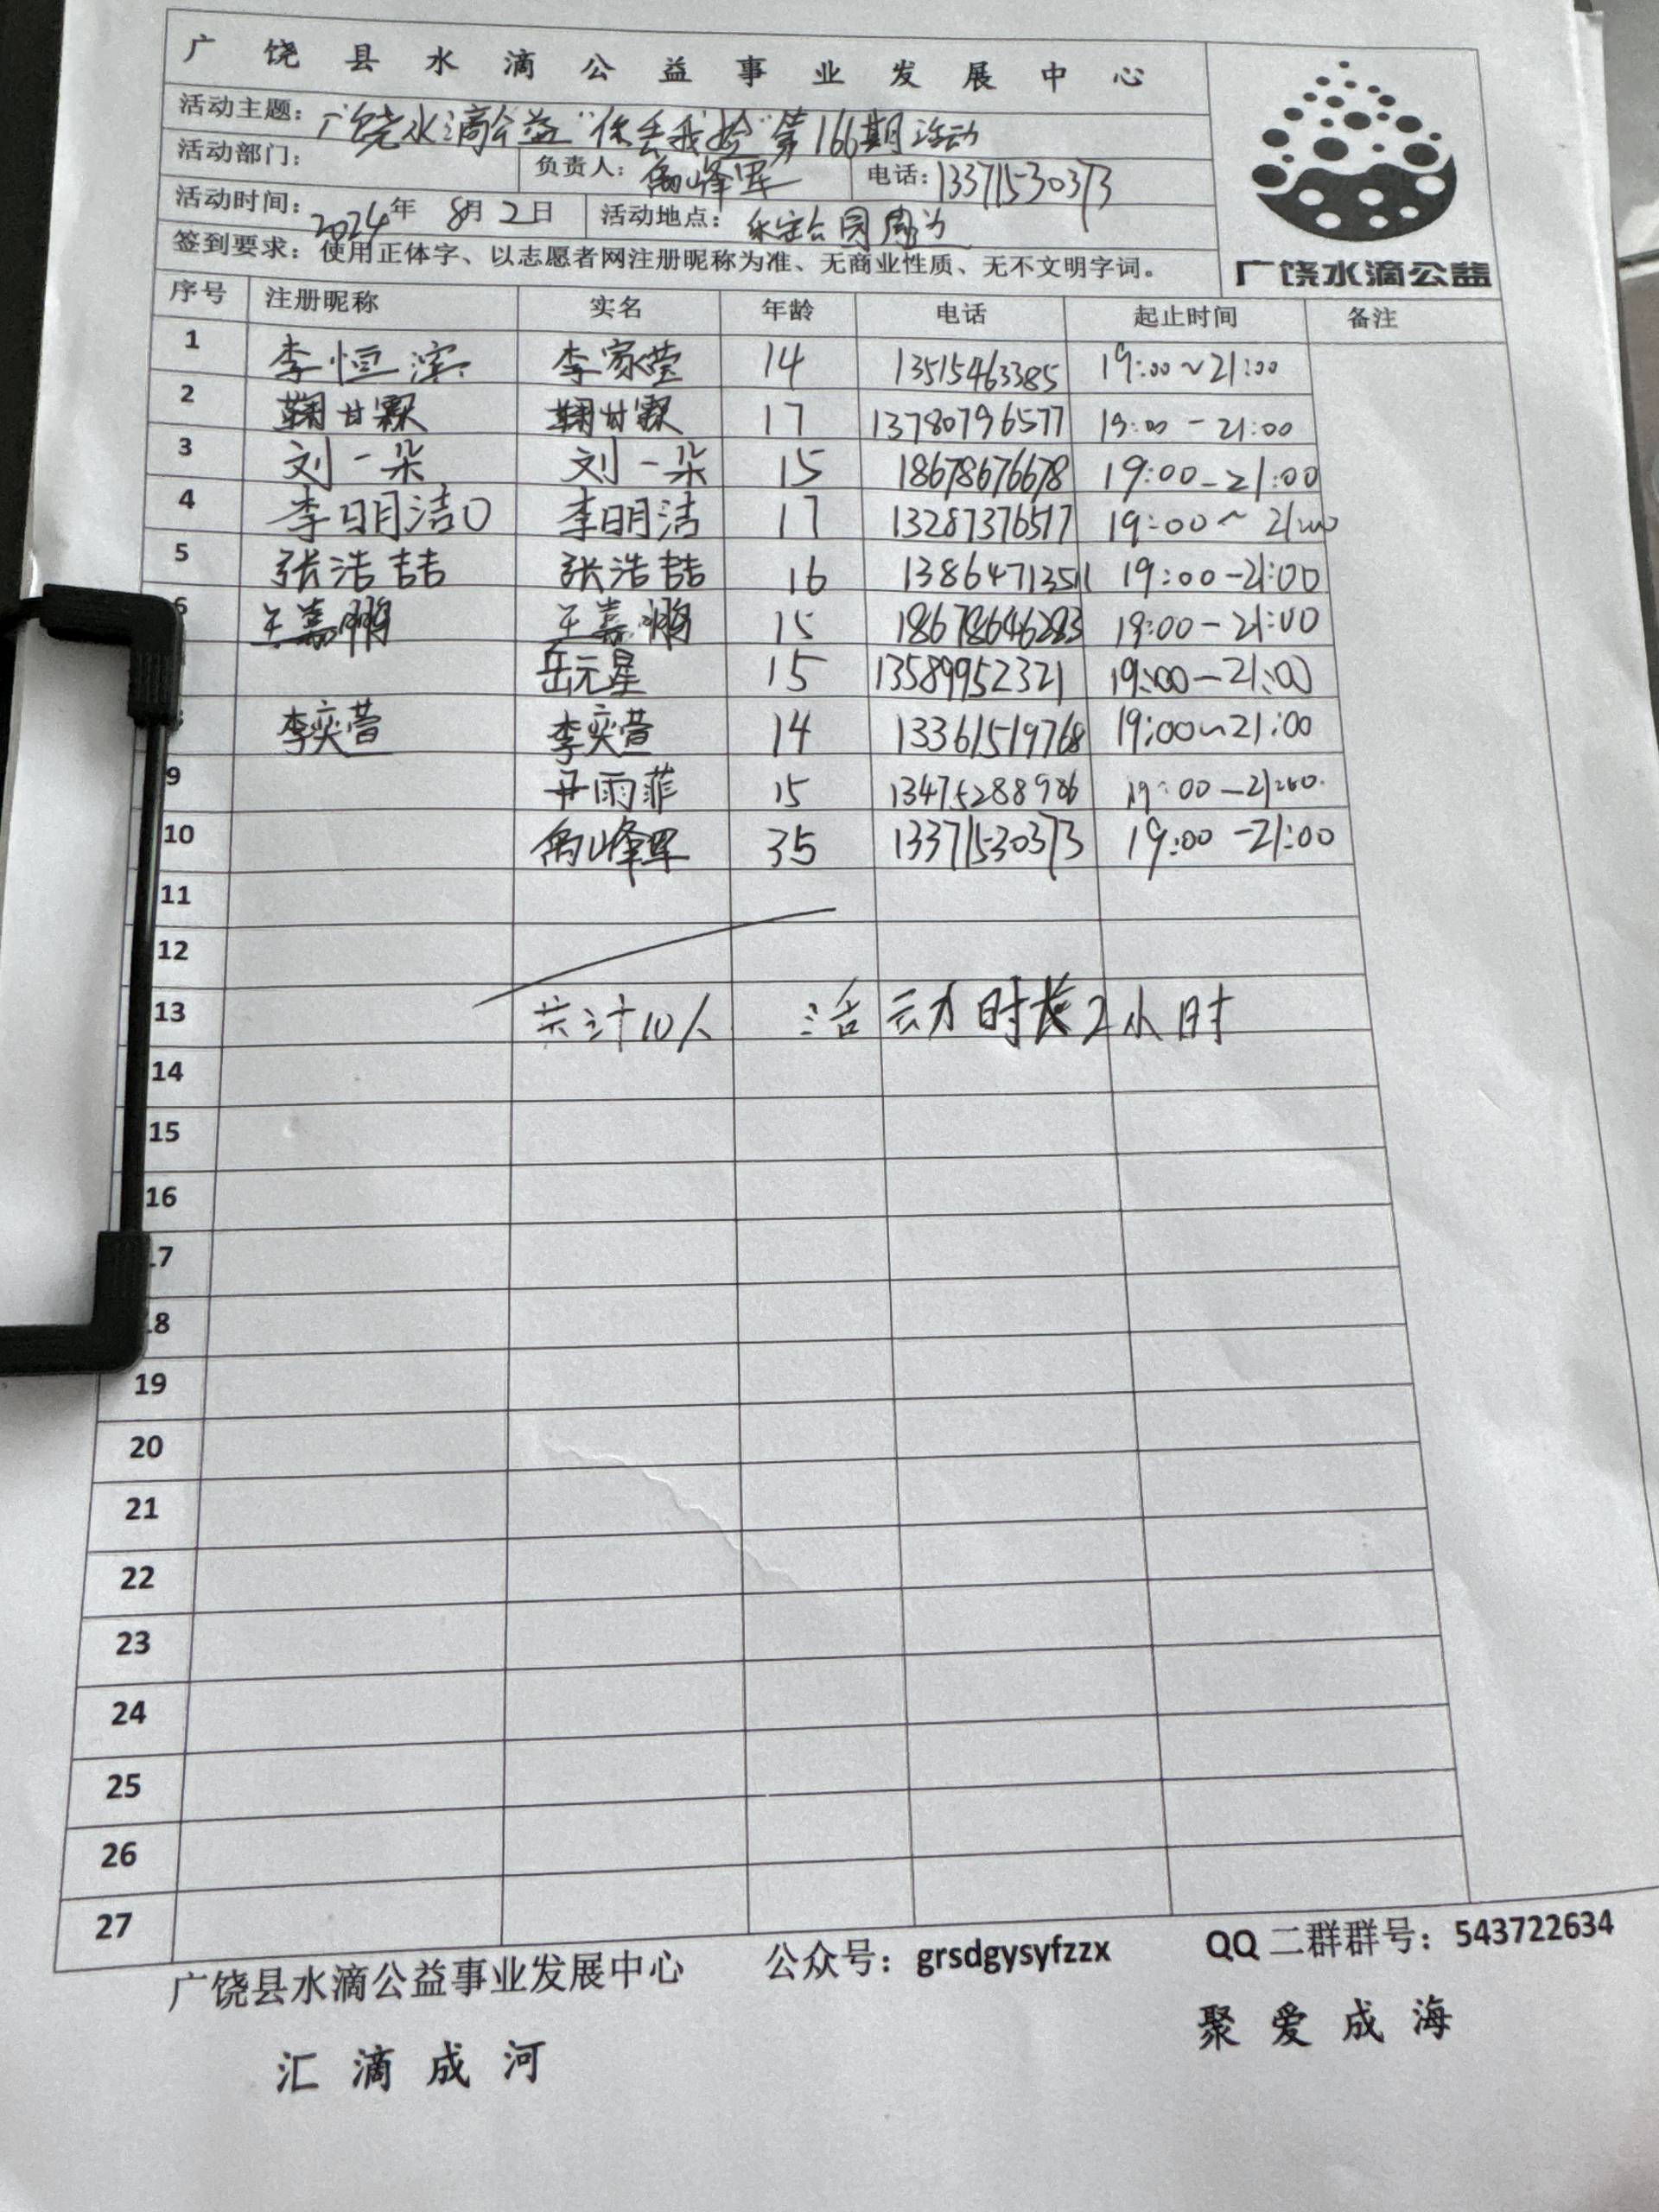 广饶县水滴公益事业发展中心
活动主题：广饶水滴公益"你丢我捡"第166期活动
活动部门： 负责人：禹峰军 电话：13371530373
活动时间：2024年 8月2日 活动地点：乐安公园周边
签到要求：使用正体字、以志愿者网注册昵称为准、无商业性质、无不文明字词。
广饶水滴公益
序号 注册昵称 实名 年龄 电话 起止时间 备注
1 李恒滨 李家莹 14 13515463385 19:00~21:00
2 鞠甘霖 鞠甘霖 17 13780796577 19:00-21:00
3 刘一朵 刘一朵 15 18678676678 19:00-21:00
4 李明洁0 李明洁 17 13287376517 19:00~21:00
5 张浩喆 张浩喆 16 13864713511 19:00-21:00
6 王嘉鹏 王嘉鹏 15 18678646283 19:00-21:00
岳元星 15 13589952321 19:00-21:00
李奕萱 李奕萱 14 13361519768 19:00~21:00
9 雨菲 15 13475288986 19:00-21:00
10 禹峰军 35 13371530373 19:00-21:00
11
12
13 共计10人 活动时长2小时
14
15
16
17
18
19
20
21
22
23
24
25
26
27
广饶县水滴公益事业发展中心 公众号：grsdgysyfzzx QQ二群群号：543722634
汇滴成河 聚爱成海